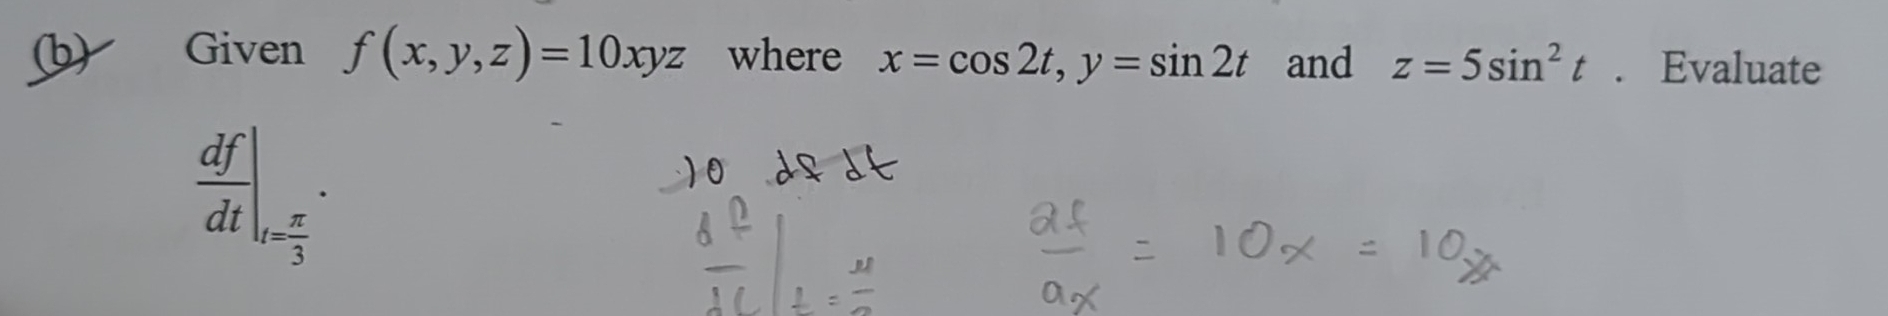 (b) Given f(x,y,z)=10xyz where x=cos2t, y=sin2t and z=5sin²t. Evaluate
df/dt|t=π/3.
10 df dt
df/dt|t=π/3
∂f/∂x = 10x = 10